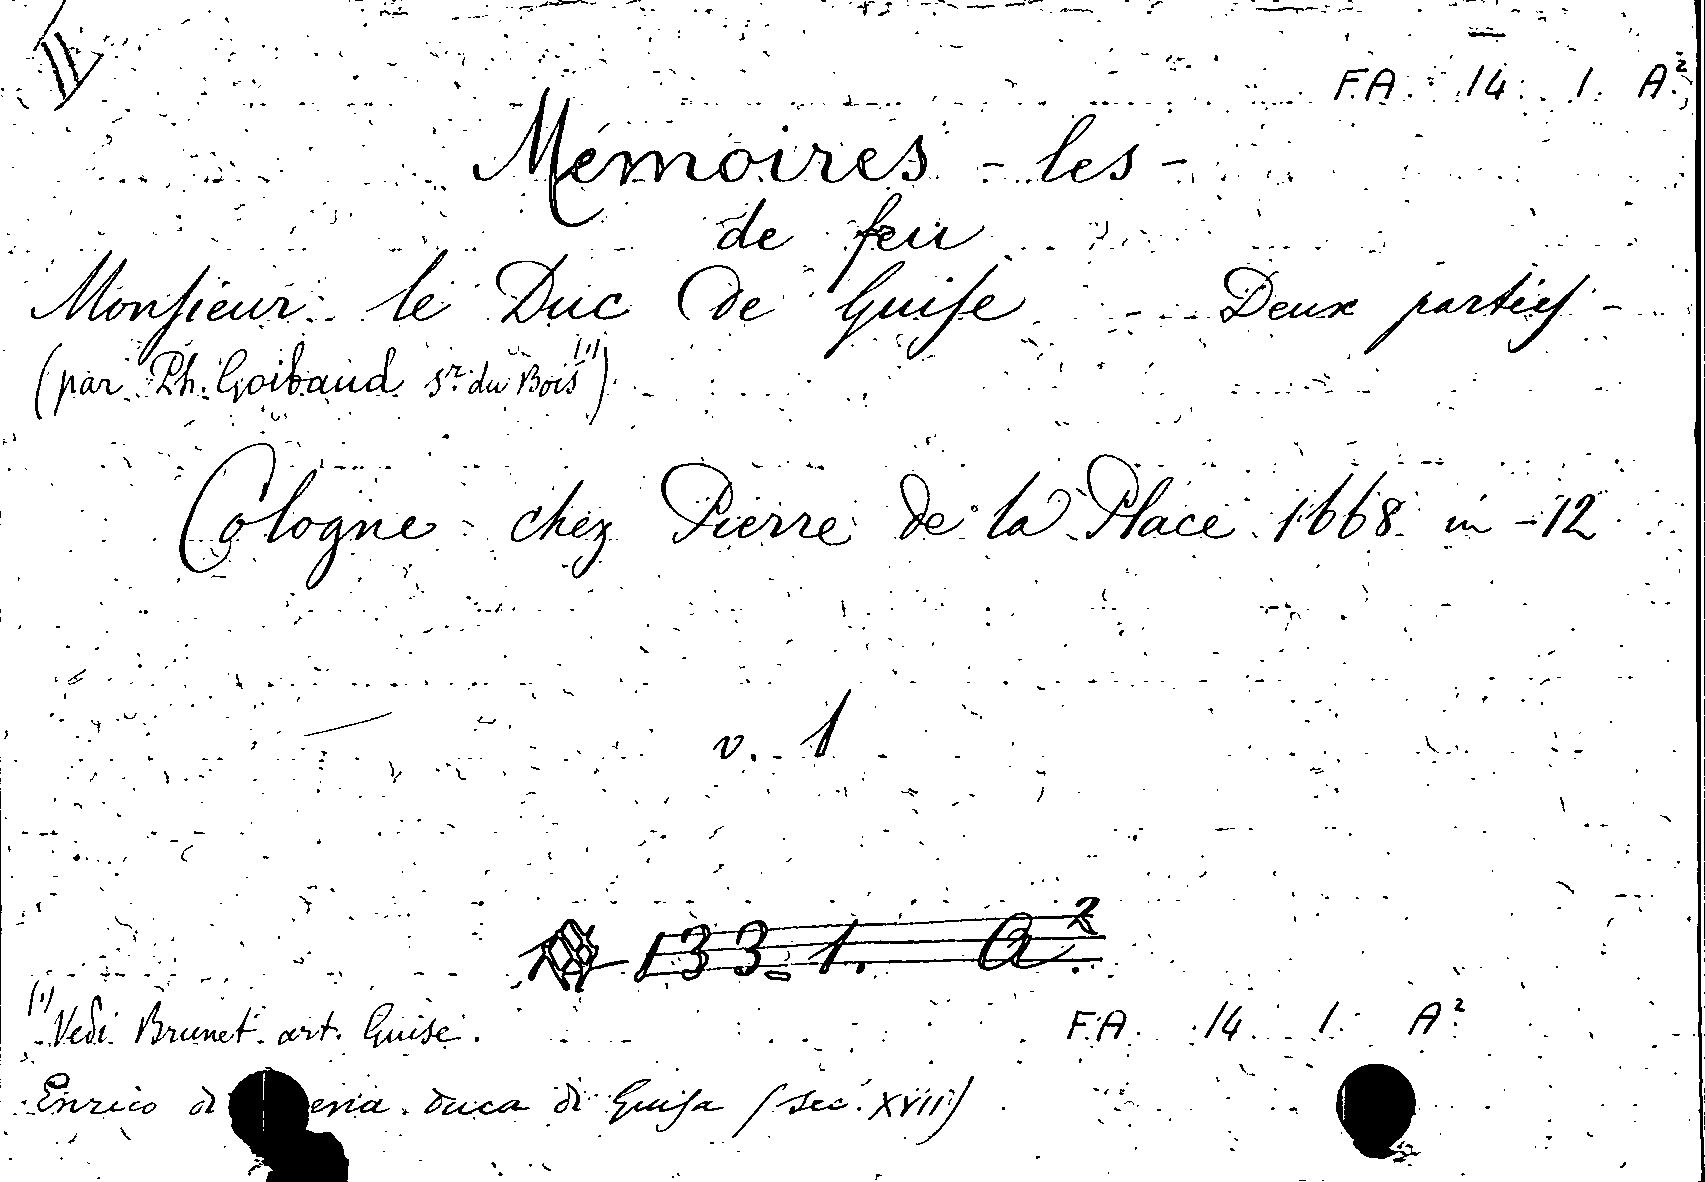 F.A. 14. 1. A².
Mémoires - les -
de feu
Monsieur le Duc de Guise - Deux parties -
(par Ph. Goibaud Sr. du Bois (1))
Cologne chez Pierre de la Place 1668 in -12
v. 1
133. 1. A².
(1) Vedi Brunet art. Guise.
F.A. 14. 1. A²
Enrico di duca di Guisa (sec. XVII)